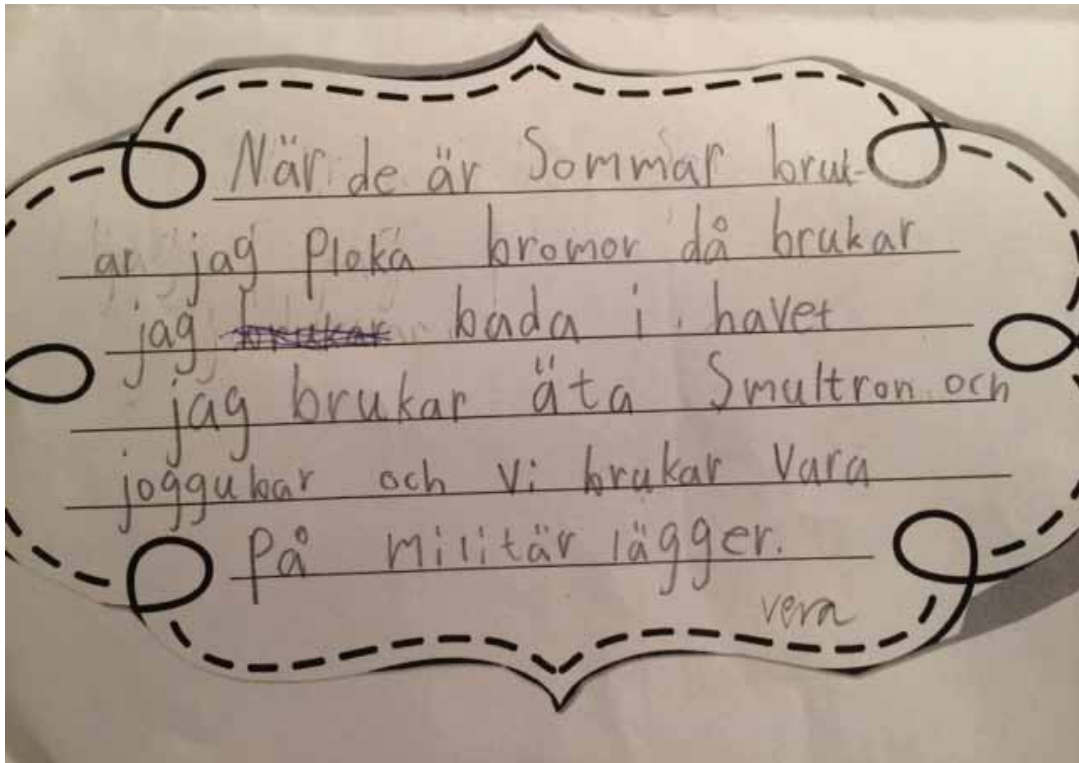 När de är Sommar bruk-
ar jag Ploka bromor då brukar
jag brukar bada i havet
jag brukar äta Smultron och
joggubar och Vi brukar Vara
På militär lägger.
vera